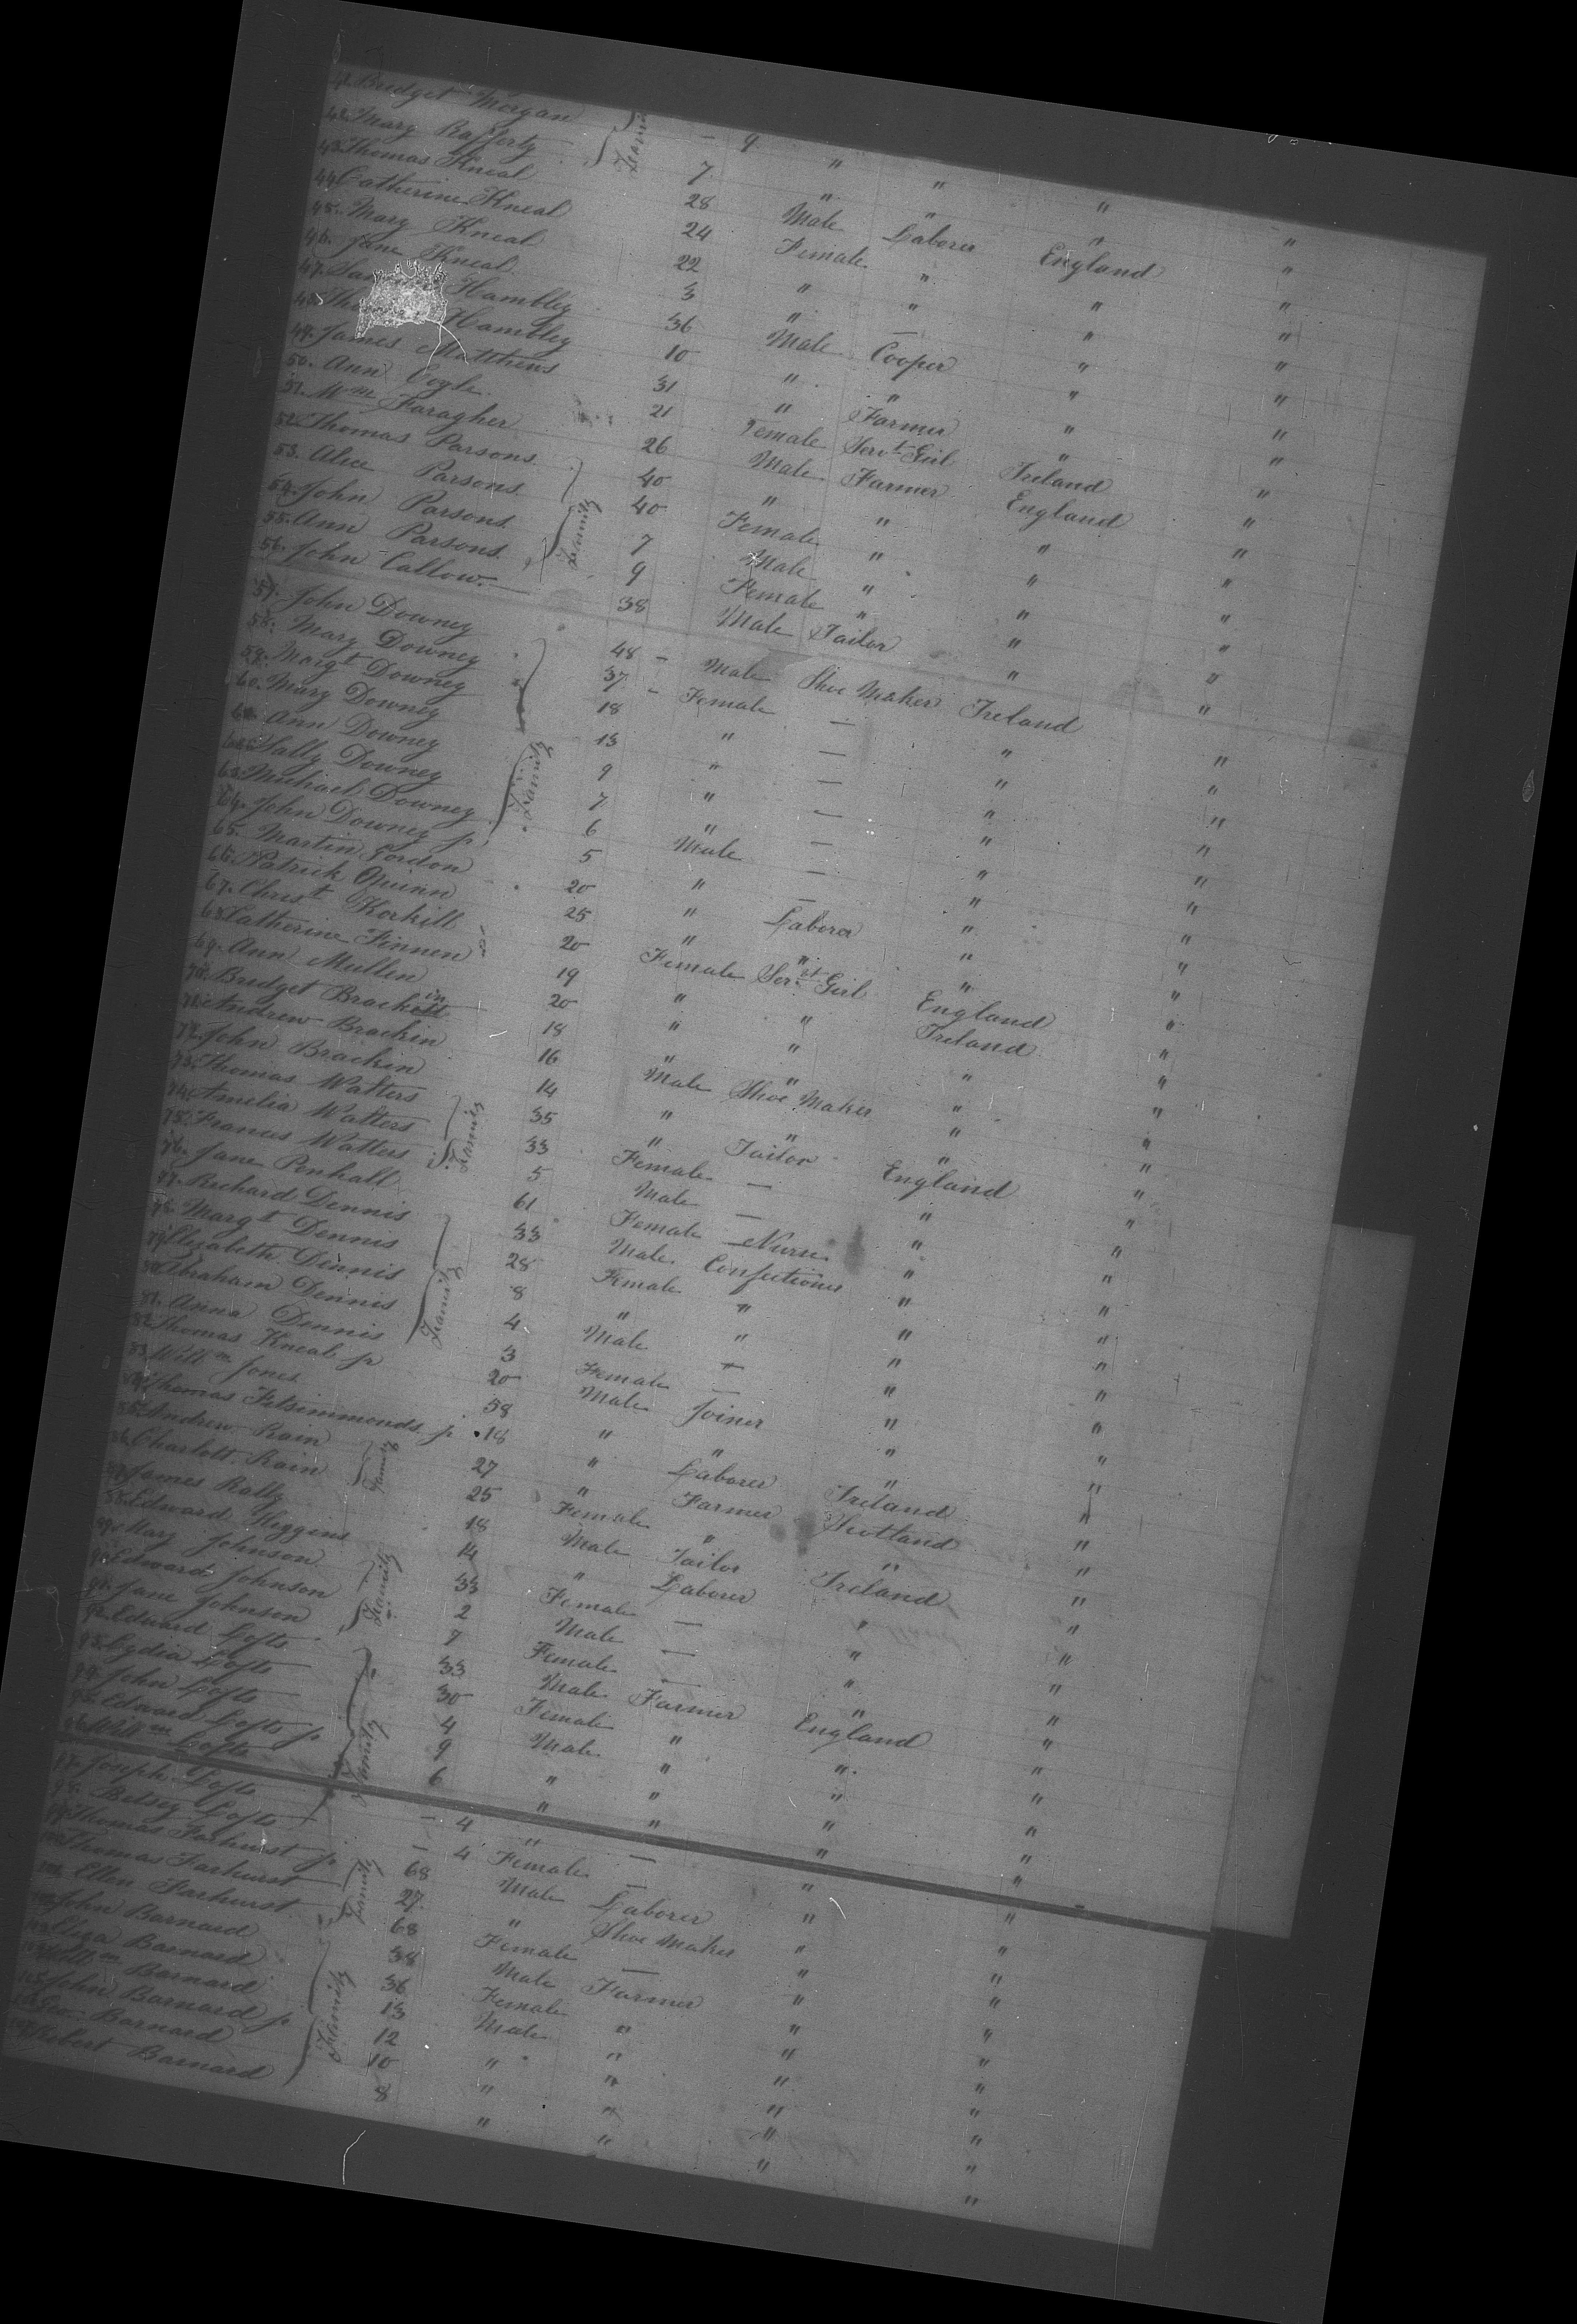 41. Bridget Morgan - 9 " " " "
42. Mary Rafferty 7 " " " "
43. Thomas Kneal 28 Male Laborer England "
44. Catherine Kneal 24 Female " " "
45. Mary Kneal 22 " " " "
46. Jane Kneal 3 " — " "
47. Hambley 36 Male Cooper " "
48. Hambley 10 " " " "
49. James Matthews 31 " Farmer " "
50. Ann Cogle 21 Female Servt Girl Ireland "
51. Wm Faragher 26 Male Farmer England "
52. Thomas Parsons 40 " " " "
53. Alice Parsons 40 Female " " "
54. John Parsons 7 Male " " "
55. Ann Parsons 9 Female " " "
56. John Callow 38 Male Tailor " "
Family
57. John Downey 48 - Male Shoe Maker Ireland "
58. Mary Downey 37 - Female — " "
59. Margt Downey 18 " — " "
60. Mary Downey 13 " — " "
61. Ann Downey 9 " — " "
62. Sally Downey 7 " — " "
63. Michael Downey 6 Male — " "
64. John Downey jr 5 " — " "
Family
65. Martin Gordon 20 " Laborer " "
66. Patrick Quinn 25 " " " "
67. Christ Korkill 20 Female Servt Girl England "
68. Catherine Finnen 19 " " Ireland "
69. Ann Mullin 20 " " " "
70. Bridget Brackin 18 " " " "
71. Andrew Brackin 16 Male Shoe Maker " "
72. John Brackin 14 " " " "
73. Thomas Watters 35 " Tailor England "
74. Amelia Watters 33 Female — " "
75. Francis Watters 5 Male — " "
Family
76. Jane Penhall 61 Female Nurse " "
77. Richard Dennis 33 Male Confectioner " "
78. Margt Dennis 28 Female " " "
79. Elizabeth Dennis 8 " " " "
80. Abraham Dennis 4 Male — " "
81. Anna Dennis 3 Female — " "
Family
82. Thomas Kneal jr 20 Male Joiner " "
83. Willm Jones 58 " " " "
84. Thomas Fitsimmonds jr 18 " Laborer Ireland "
85. Andrew Rain 27 " Farmer Scotland "
86. Charlott Rain 25 Female " " "
Family
87. James Rally 18 Male Tailor Ireland "
88. Edward Higgins 14 " Laborer " "
89. Mary Johnson 33 Female — " "
90. Edward Johnson 2 Male — " "
91. Jane Johnson 7 Female — " "
Family
92. Edward Lofts 33 Male Farmer England "
93. Lydia Lofts 30 Female " " "
94. John Lofts 4 Male " " "
95. Edward Lofts jr 9 " " " "
96. Willm Lofts 6 " " " "
Family
97. Joseph Lofts - 4 " — " "
98. Betsey Lofts - 4 Female — " "
99. Thomas Farhurst jr 68 Male Laborer " "
100. Thomas Farhurst 27 " Shoe Maker " "
101. Ellen Farhurst 68 Female — " "
Family
102. John Barnard 38 Male Farmer " "
103. Eliza Barnard 36 Female " " "
104. Willm Barnard 13 Male " " "
105. John Barnard jr 12 " " " "
106. Geo. Barnard 10 " " " "
107. Robert Barnard 8 " " " "
Family